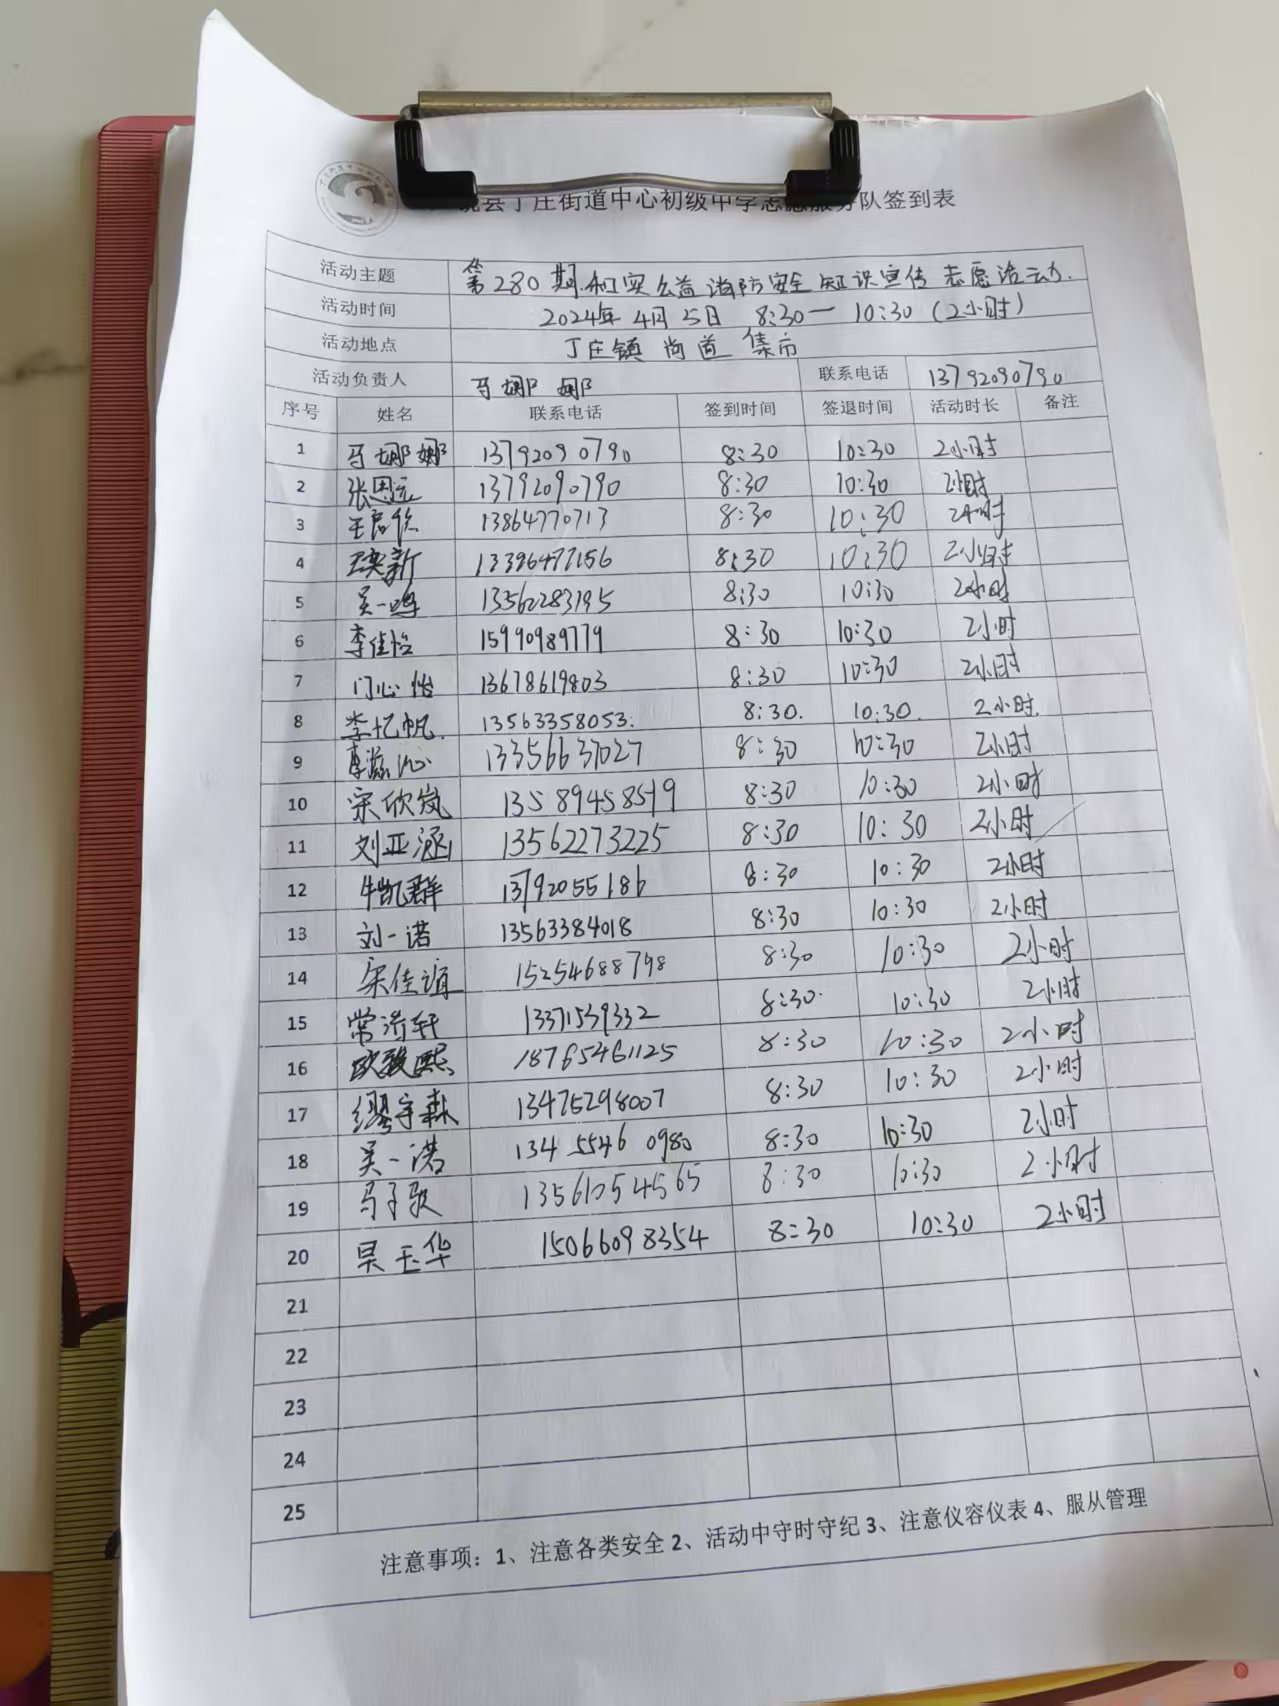 县丁庄街道中心初级中学志愿服务队签到表
活动主题 第280期和实公益消防安全知识宣传志愿活动.
活动时间 2024年4月5日 8:30一10:30(2小时)
活动地点 丁庄镇 尚道 集市
活动负责人 马娜娜 联系电话 13792090790
序号 姓名 联系电话 签到时间 签退时间 活动时长 备注
1 马娜娜 13792090790 8:30 10:30 2小时
2 张恩远 13792090790 8:30 10:30 2小时
3 13864770713 8:30 10:30 2小时
4 13396477156 8:30 10:30 2小时
5 吴一鸣 13562283195 8:30 10:30 2小时
6 李佳怡 15990989779 8:30 10:30 2小时
7 门心怡 13678619803 8:30 10:30 2小时
8 李忆帆. 13563358053. 8:30. 10:30. 2小时.
9 13356637027 8:30 10:30 2小时
10 宋欣岚 13589458519 8:30 10:30 2小时
11 刘亚涵 13562273225 8:30 10:30 2小时
12 牛凯群 13792055186 8:30 10:30 2小时
13 刘一诺 13563384018 8:30 10:30 2小时
14 宋佳谊 15254688798 8:30 10:30 2小时
15 常济轩 13371539332 8:30. 10:30 2小时
16 欧骏熙 18765461125 8:30 10:30 2小时
17 缪宇森 13475298007 8:30 10:30 2小时
18 吴一诺 13455460980 8:30 10:30 2小时
19 马子骏 13561054565 8:30 10:30 2小时
20 吴玉华 15066098354 8:30 10:30 2小时
21
22
23
24
25
注意事项：1、注意各类安全 2、活动中守时守纪 3、注意仪容仪表 4、服从管理